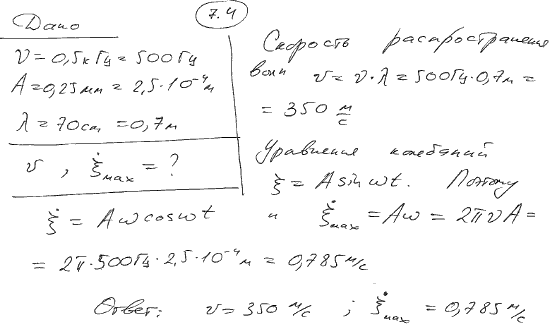 7.4
Дано
ν = 0,5кГц = 500Гц
A = 0,25мм = 2,5·10⁻⁴м
λ = 70cm = 0,7м
v , ξ̇max = ?
Скорость распространения
волн v = ν·λ = 500Гц·0,7м =
= 350 м/с
Уравнение колебаний
ξ = A sin ωt. Поэтому
ξ̇ = Aω cos ωt и ξ̇max = Aω = 2πνA =
= 2π·500Гц·2,5·10⁻⁴м = 0,785 м/с
Ответ: v = 350 м/с ; ξ̇max = 0,785 м/с